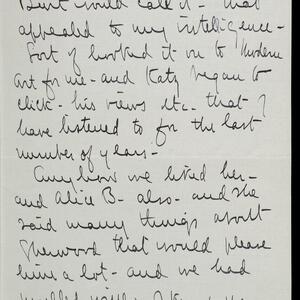 would call it - that
appealed to my intelligence -
Sort of hooked it on to Modern
art for me - and Katy began to
click - his views etc. that I
have listened to for the last
number of years -
Anyhow we liked her -
and Alice B - also - and she
said many things about
Sherwood that would please
him a lot - and we had